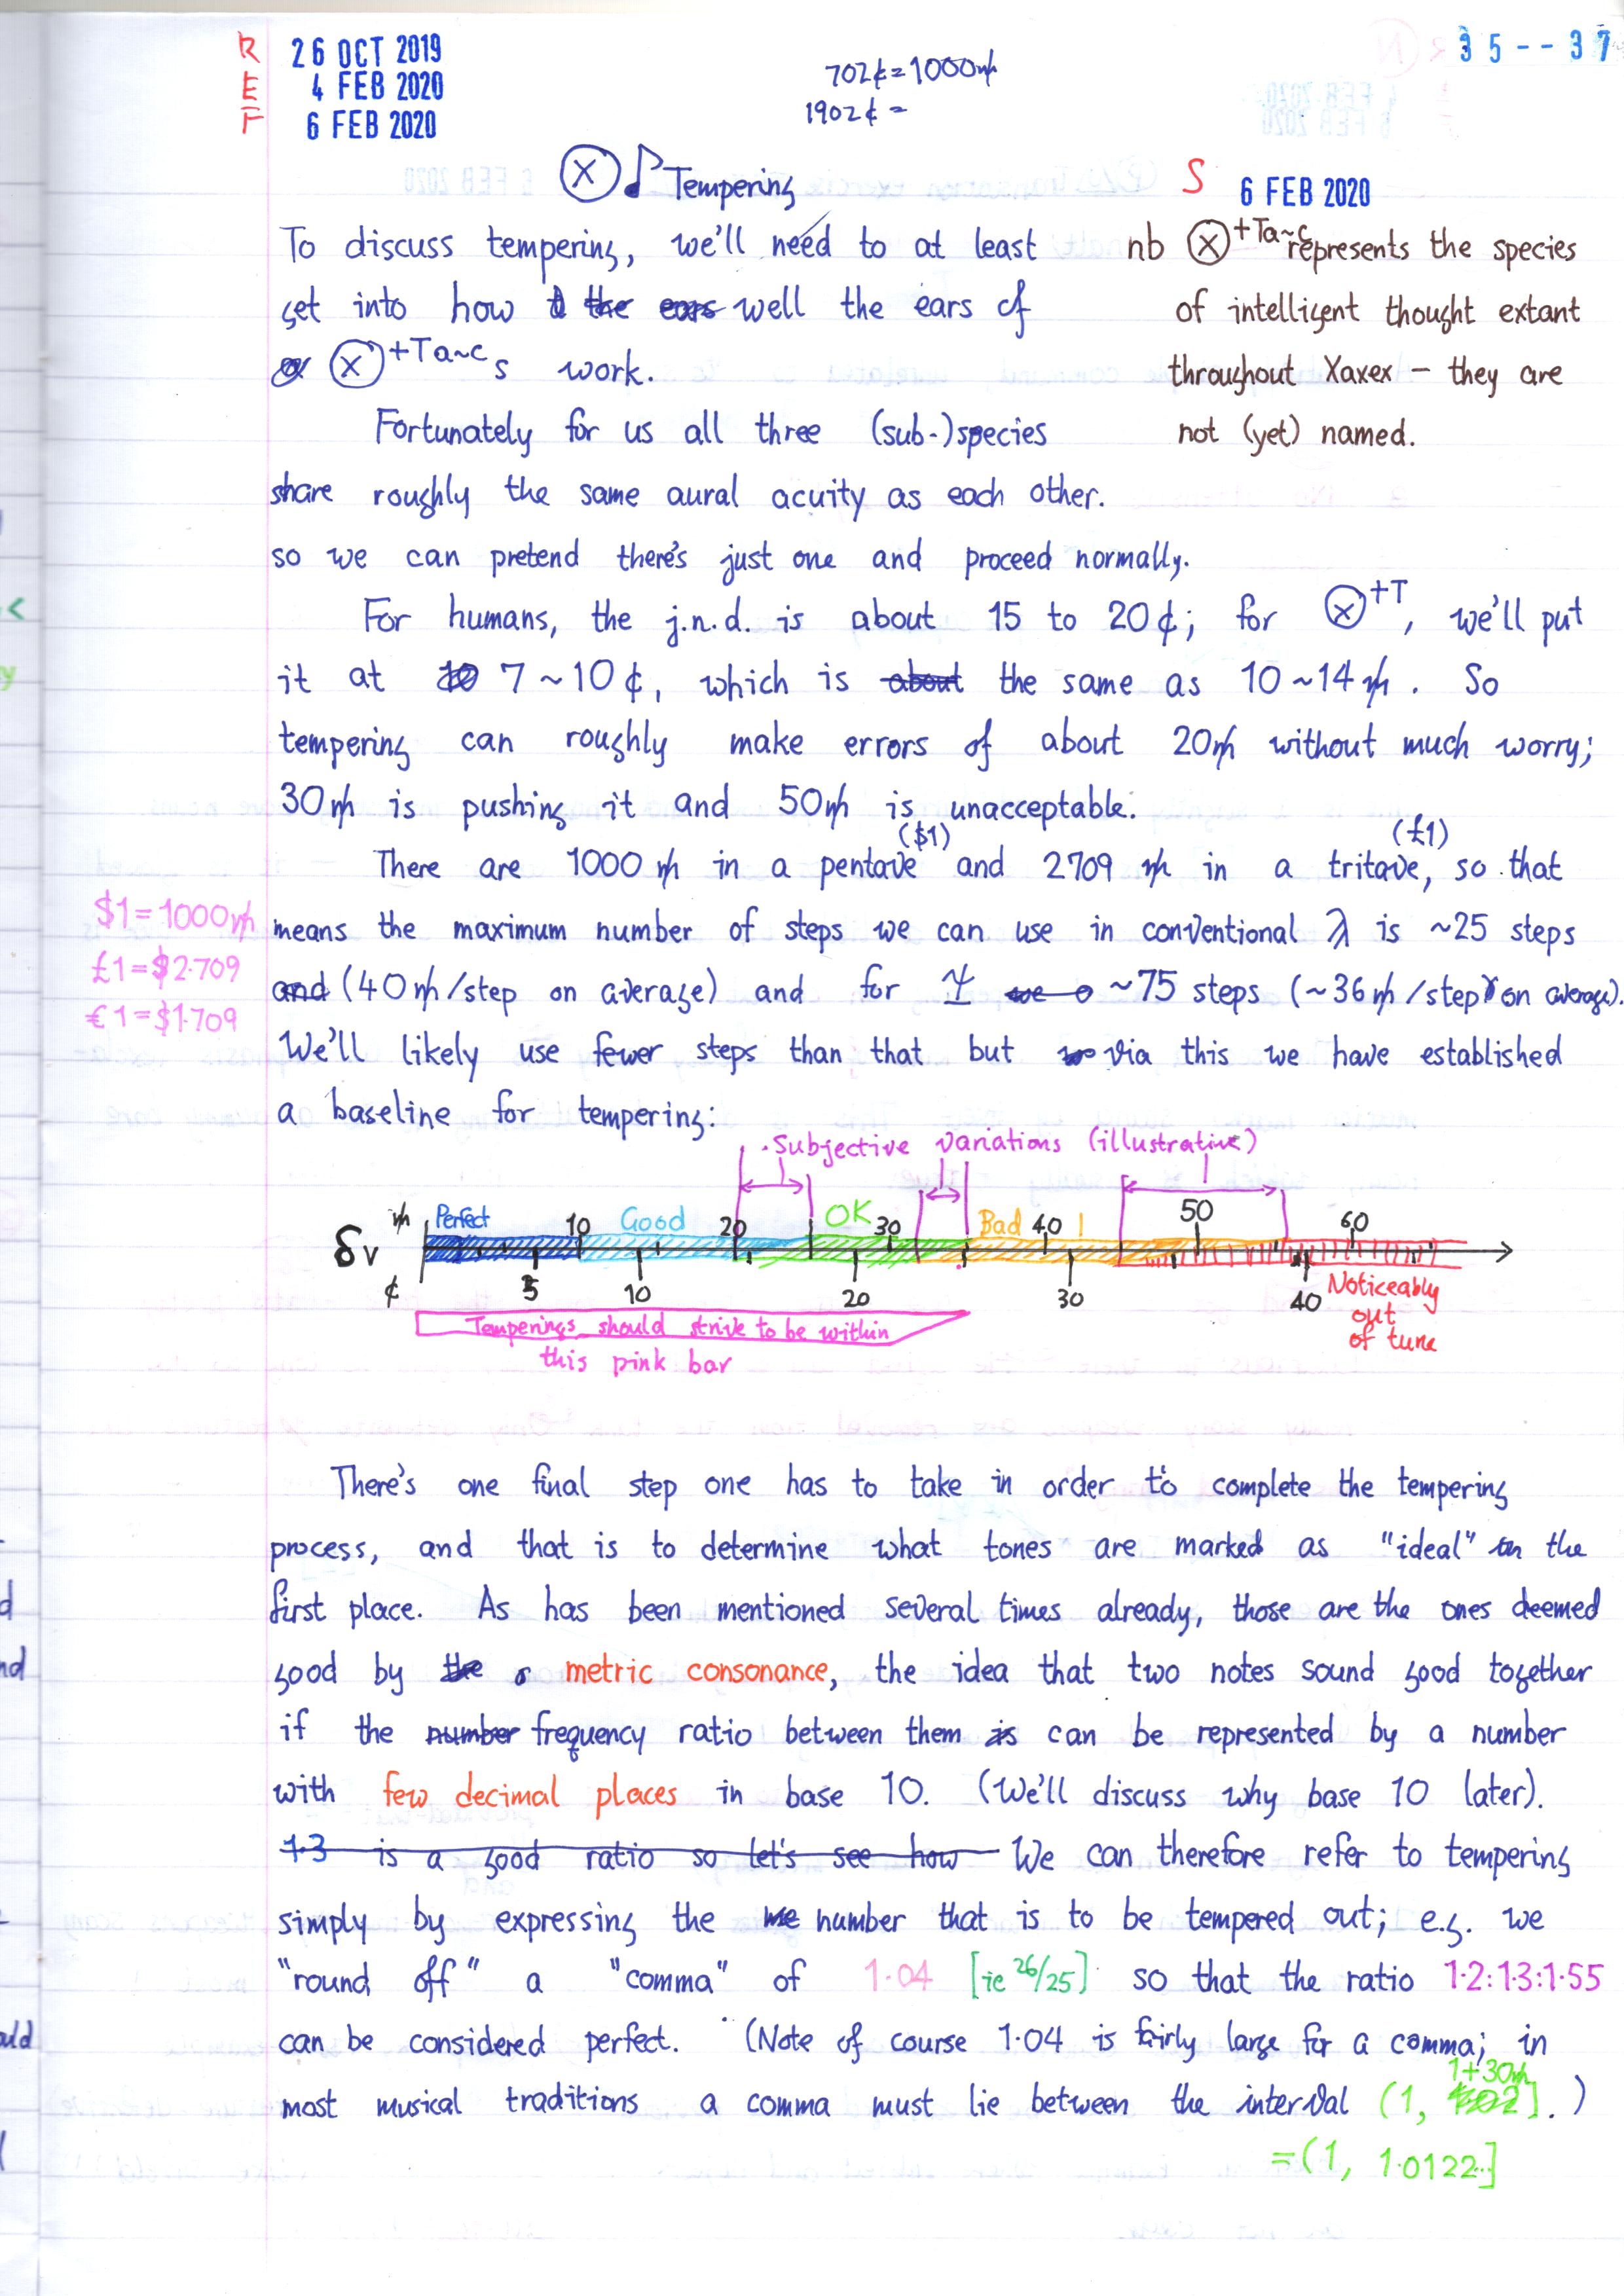 REF
26 OCT 2019
4 FEB 2020
6 FEB 2020
702¢=1000₥
1902¢ =
35--37
Ⓧ♪Tempering
S 6 FEB 2020
To discuss tempering, we'll need to at least
get into how the ears well the ears of
Ⓧ+Ta~c s work.
nb Ⓧ+Ta~c represents the species
of intelligent thought extant
throughout Xaxex – they are
not (yet) named.
Fortunately for us all three (sub-)species
share roughly the same aural acuity as each other.
so we can pretend there's just one and proceed normally.
For humans, the j.n.d. is about 15 to 20¢; for Ⓧ+T, we'll put
it at 7~10¢, which is about the same as 10~14₥. So
tempering can roughly make errors of about 20₥ without much worry;
30₥ is pushing it and 50₥ is unacceptable.
($1) (£1)
There are 1000₥ in a pentave and 2709 ₥ in a tritave, so that
means the maximum number of steps we can use in conventional λ is ~25 steps
and (40₥/step on average) and for ~75 steps (~36₥/step on average).
$1=1000₥
£1=$2.709
€1=$1.709
We'll likely use fewer steps than that but via this we have established
a baseline for tempering:
Subjective variations (illustrative)
₥ Perfect 10 Good 20 OK 30 Bad 40 50 60
δv
¢ 5 10 20 30 40
Noticeably
out
of tune
Temperings should strive to be within
this pink bar
There's one final step one has to take in order to complete the tempering
process, and that is to determine what tones are marked as "ideal" in the
first place. As has been mentioned several times already, those are the ones deemed
good by the metric consonance, the idea that two notes sound good together
if the number frequency ratio between them is can be represented by a number
with few decimal places in base 10. (We'll discuss why base 10 later).
1.3 is a good ratio so let's see how We can therefore refer to tempering
simply by expressing the number that is to be tempered out; e.g. we
"round off" a "comma" of 1.04 [ie 26/25] so that the ratio 1.2:1.3:1.55
can be considered perfect. (Note of course 1.04 is fairly large for a comma; in
most musical traditions a comma must lie between the interval (1, 1+30₥].)
=(1, 1.0122..]